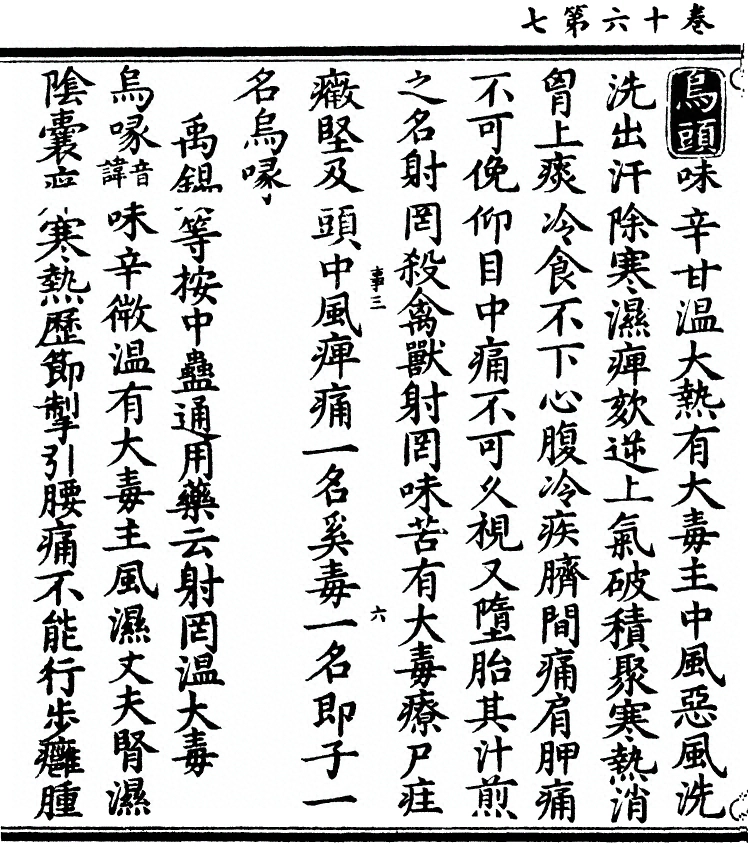 卷十六第七
烏頭味辛甘溫大熱有大毒主中風惡風洗
洗出汗除寒濕痺欬逆上氣破積聚寒熱消
胷上痰冷食不下心腹冷疾臍間痛肩胛痛
不可俛仰目中痛不可久視又墮胎其汁煎
之名射罔殺禽獸射罔味苦有大毒療尸疰
癥堅及頭中風痺痛一名奚毒一名即子一
事三
六
名烏喙
禹錫等按中蠱通用藥云射罔溫大毒
烏喙音諱味辛微溫有大毒主風濕丈夫腎濕
陰囊痒寒熱歷節掣引腰痛不能行步癰腫